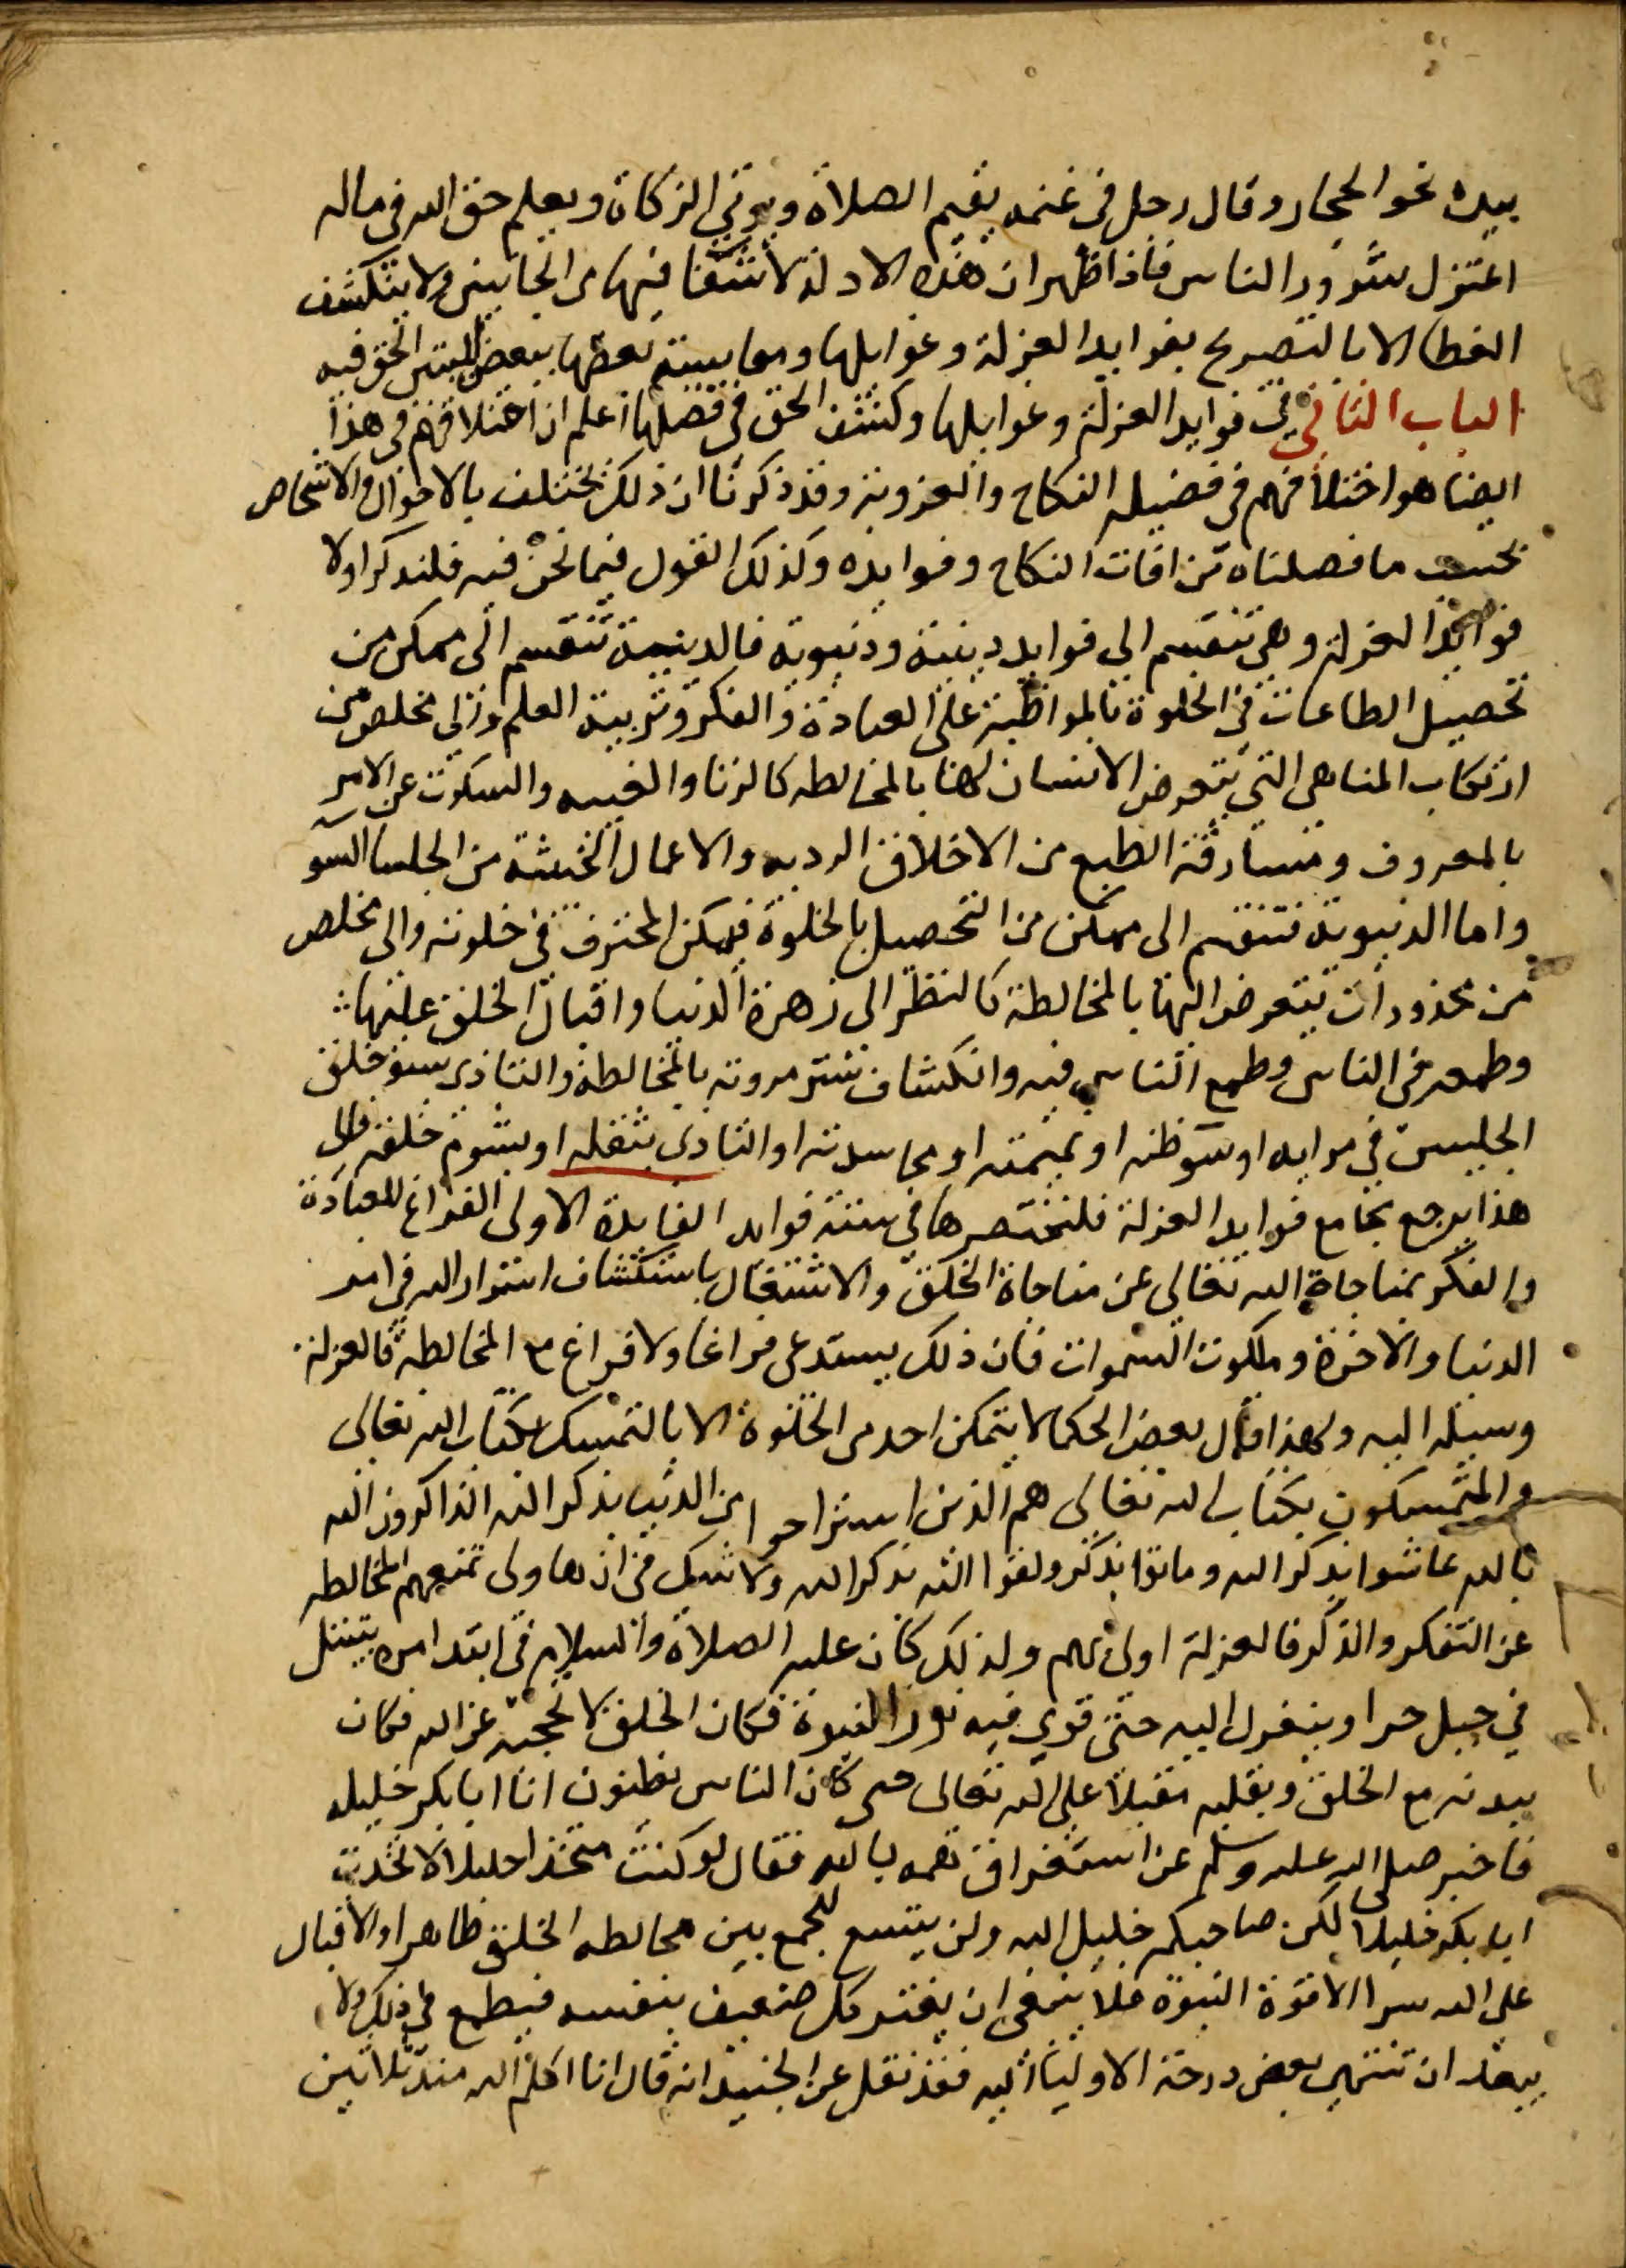 بيده نحو الحجاز وقال رجل في غنمه يقيم الصلاة ويوتي الزكاة ويعلم حق الله في ماله
اعتزل شرور الناس فاذا ظهر ان هذه الادلة لا شفا فيها من الجانبين ولا ينكشف
الغطا الا بالتصريح بفوايد العزلة وغوايلها ومقايسة بعضها ببعض ليتبين الحق فيه
الباب الثاني في فوايد العزلة وغوايلها وكشف الحق في فضلها اعلم ان اختلافهم في هذا
ايضا هو اختلافهم في فضيله النكاح والعزوبة وقد ذكرنا ان ذلك يختلف بالاحوال والاشخاص
بحسب ما فصلناه من افات النكاح وفوايده وكذلك القول فيما نحن فيه فلنذكر اولا
فوايد العزلة وهي تنقسم الي فوايد دينية ودنيوية فالدينية تنقسم الى ممكن من
تحصيل الطاعات في الخلوة بالمواظبة على العبادة والفكر وتربية العلم والى مخلص من
ارتكاب المناهي التي يتعرض الانسان لها بالمخالطه كالزنا والغيبه والسكوت عن الامر
بالمعروف ومسارقة الطبع من الاخلاق الرديه والاعمال الخبيثة من الجلسا السو
واما الدنيوية فتنقسم الى ممكن من التحصيل بالخلوة فيمكن المحترف في خلوته والى مخلص
من محذورات يتعرض اليها بالمخالطة كالنظر الى زهرة الدنيا واقبال الخلق عليها
وطمعه في الناس وطمع الناس فيه وانكشاف ستر مروته بالمخالطة والتاذي بسو خلق
الجليس في مرايه او سو ظنه او نميمته او محاسدته او التاذى بثقله او بشوم خلقه والى
هذا يرجع مجامع فوايد العزلة فلنختصرها في ستة فوايد الفايدة الاولى الفراغ للعبادة
والفكر بمناجاة الله تعالى عن مناجاة الخلق والاشتغال باستكشاف اسرار الله في امر
الدنيا والاخرة وملكوت السموات فان ذلك يستدعى فراغا ولا فراغ مع المخالطة فالعزلة
وسيلة اليه ولهذا قال بعض الحكما لا يتمكن احد من الخلوة الا بالتمسك بكتاب الله تعالى
والمتمسكون بكتاب الله تعالى هم الذين استراحوا من الدنيا بذكر الله الذاكرون الله
بالله عاشوا بذكر الله وماتوا بذكر ولقوا الله بذكر الله ولا شك في ان هاولى تمنعهم المخالطه
عن التفكر والذكر فالعزلة اولى لهم ولذلك كان عليه الصلاة والسلام في ابتدا امره يتبتل
في جبل حرا وينعزل اليه حتى قوي فيه نور النبوة فكان الخلق لا تحجبه عن الله فكان
ببدنه مع الخلق وبقلبه مقبلا على الله تعالى حتى كان الناس يظنون ان ابا بكر خليله
فاخبر صلى الله عليه وسلم عن استغراق همه بالله فقال لو كنت متخذا خليلا لاتخذت
ابا بكر خليلا لكن صاحبكم خليل الله ولن يتسع للجمع بين مخالطه الخلق ظاهرا والاقبال
على الله سرا الا قوة النبوة فلا ينبغي ان يغتر كل ضعيف بنفسه فيطمع في ذلك ولا
يبعد ان تنتهي بعض درجة الاوليا اليه فقد نقل عن الجنيد انه قال انا اكلم الله منذ ثلاثين